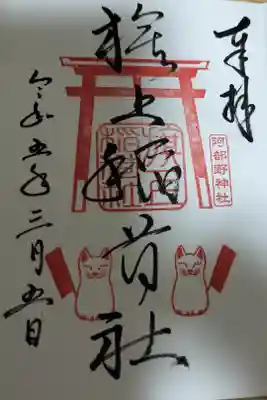 奉拝
阿部野神社
旗上稲荷社
令和五年三月五日